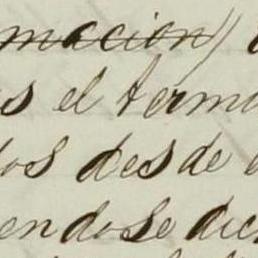 macion)
s el termi
los desde
endose dich